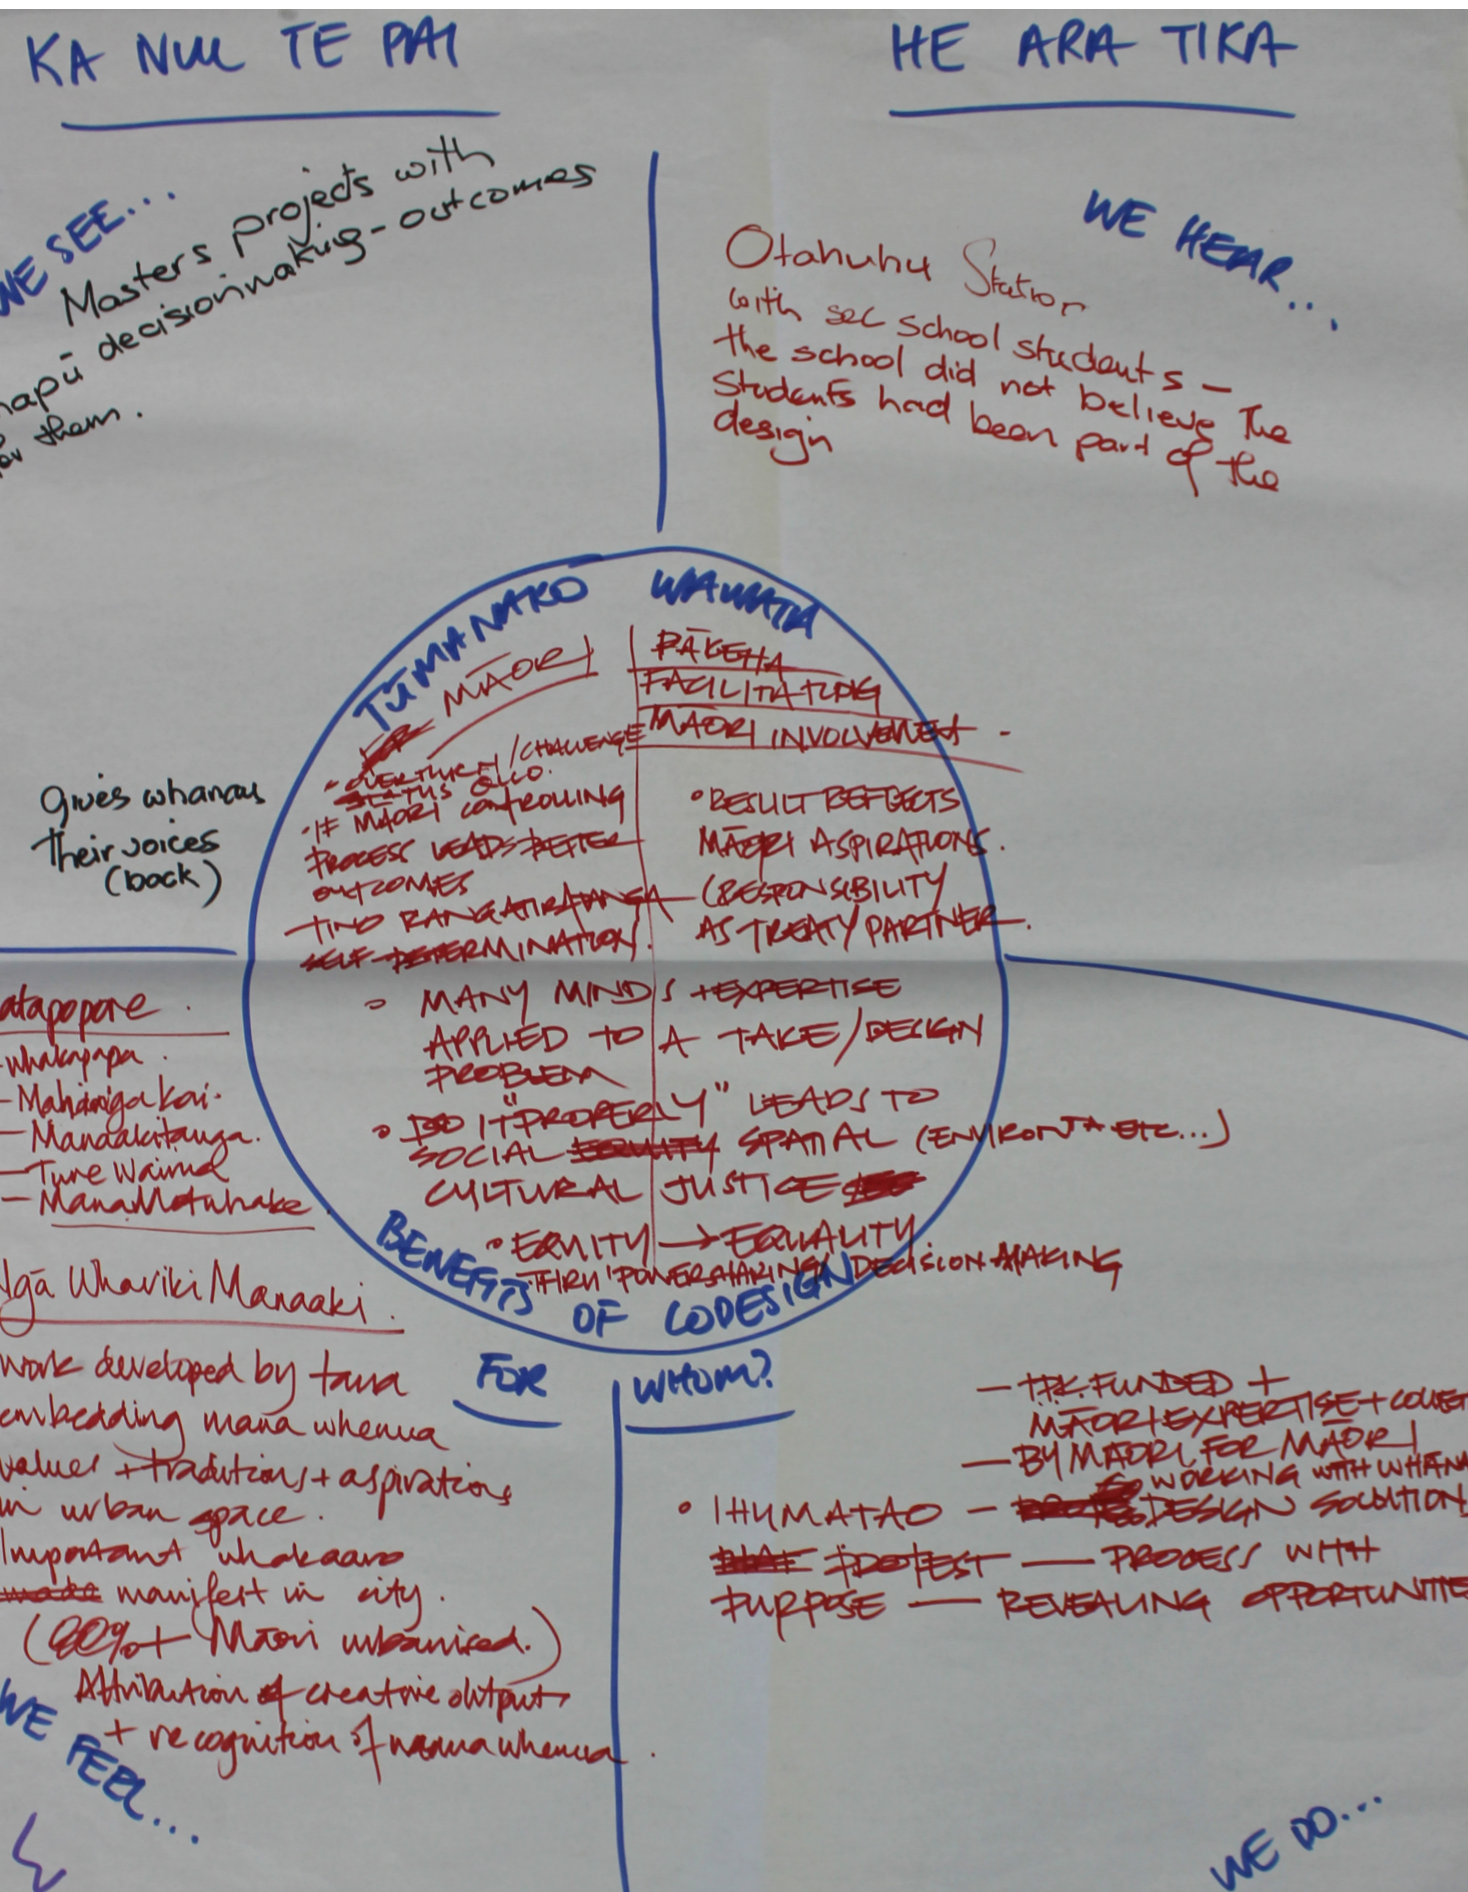 KA NUI TE PAI
HE ARA TIKA
WE SEE...
Masters projects with
hapū decisionmaking-outcomes
for them.
WE HEAR...
Otahuhu Station
with sec school students –
the school did not believe the
students had been part of the
design
Gives whanau
their voices
(back)
TŪMANAKO WAWATA
MĀORI
- OVERTURN/CHALLENGE
STATUS QUO.
· IF MĀORI CONTROLLING
PROCESS LEADS BETTER
OUTCOMES
- TINO RANGATIRATANGA
SELF DETERMINATION.
PĀKEHA
FACILITATING
MĀORI INVOLVEMENT -
• RESULT REFLECTS
MĀORI ASPIRATIONS.
(RESPONSIBILITY
AS TREATY PARTNER.
• MANY MINDS + EXPERTISE
APPLIED TO A TAKE/DESIGN
PROBLEM
• DO IT "PROPERLY" LEADS TO
SOCIAL EQUITY SPATIAL (ENVIRONT + ETC...)
CULTURAL JUSTICE
• EQUITY → EQUALITY
THRU' POWERSHARING/DECISION MAKING
BENEFITS OF CODESIGN
FOR WHOM?
atapopore.
- whakapapa.
- Mahinga kai.
- Manaakitanga.
- Ture Wairua
- Mana Motuhake
Ngā Whāriki Manaaki.
work developed by
embedding mana whenua
values + traditions + aspirations
in urban space.
Important whakaaro
made manifest in city.
(80%+ Māori urbanised.)
Attribution of creative output
+ recognition of mana whenua.
WE FEEL...
— TPK FUNDED +
MĀORI EXPERTISE +
— BY MĀORI, FOR MĀORI
WORKING WITH WHĀNA
• IHUMATAO — DESIGN SOLUTION
PROTEST — PROCESS WITH
PURPOSE — REVEALING OPPORTUNITIES
WE DO...